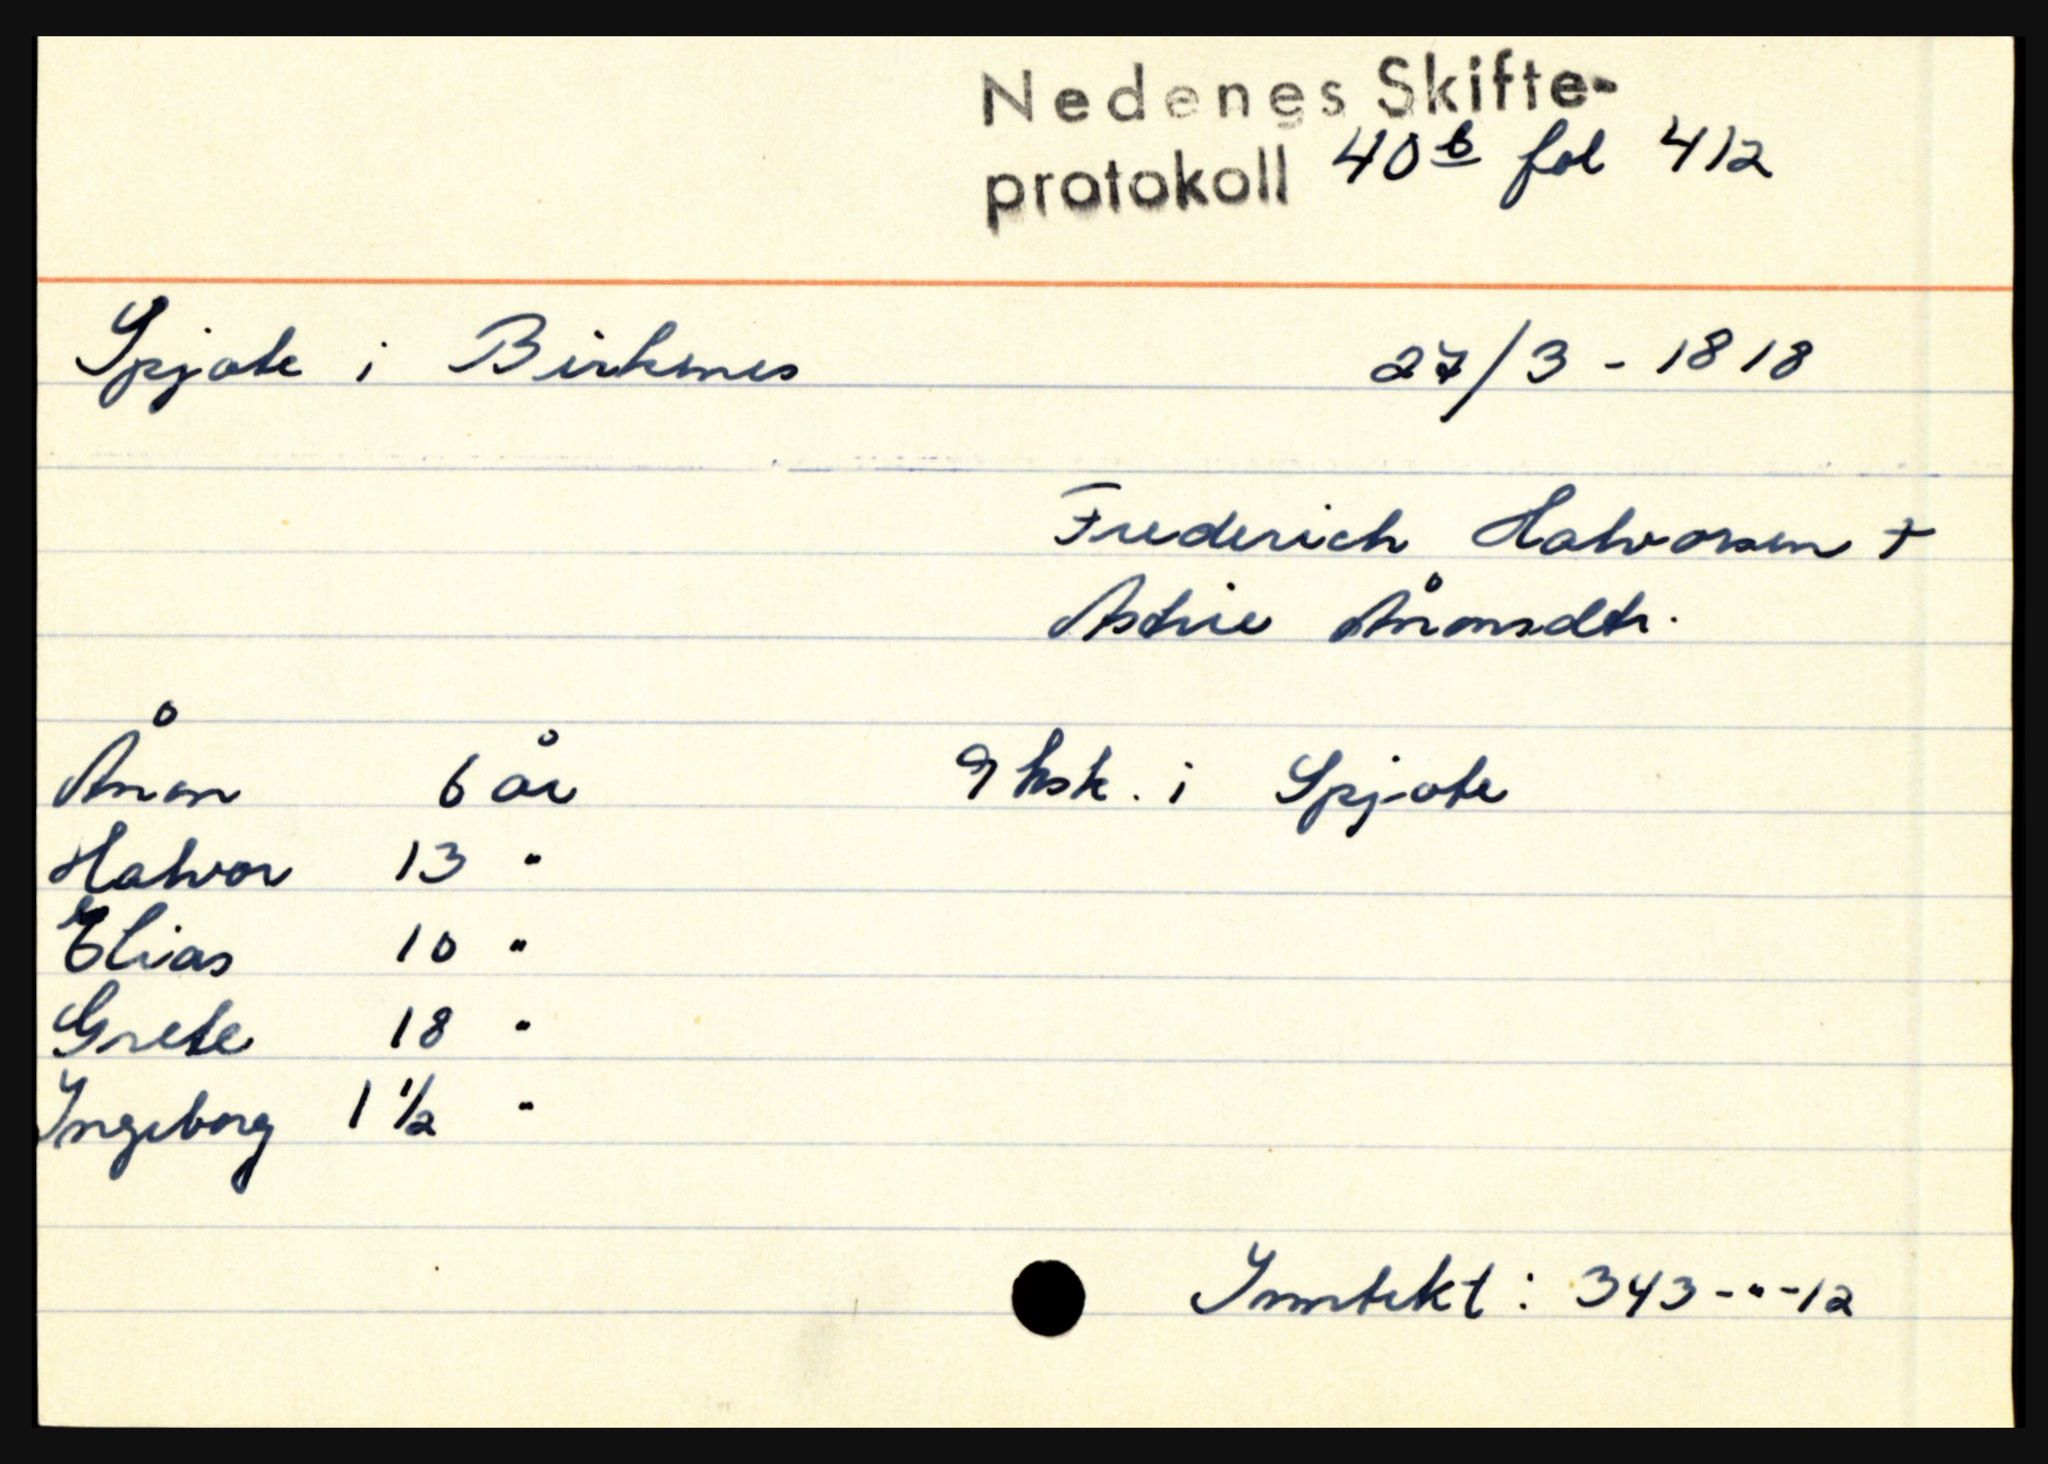 Nedenes Skifte-
protokoll 40 b fol 412
Spjote i Birkenes 27/3 - 1818
Frederich Halvorsen +
Astrie Ånonsdtr.
Ånon 6 år 9 ksk. i Spjote
Halvor 13 "
Elias 10 "
Grete 18 "
Ingeborg 1 1/2 "
Inntekt : 343-"-12